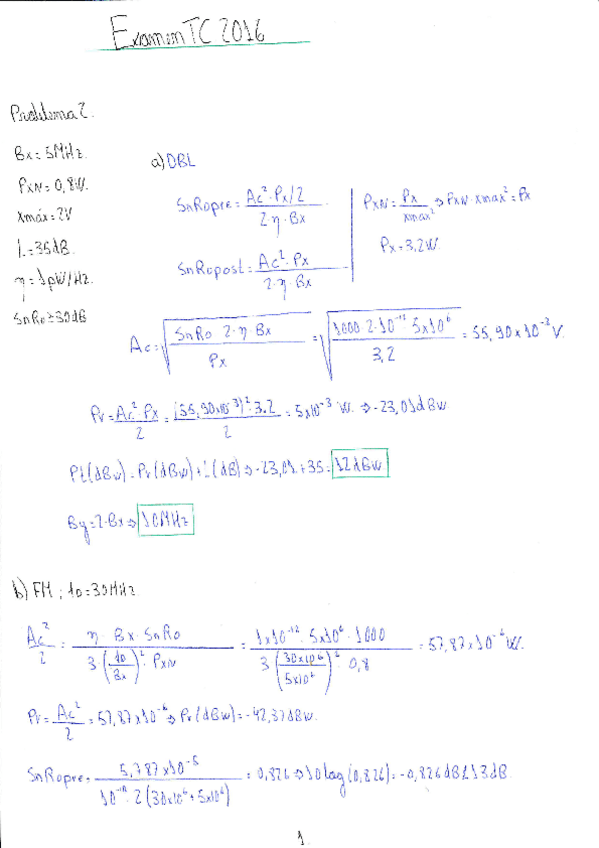 Examen TC 2016
Problema 2.
Bx = 5MHz.
PxN = 0,8W.
xmáx = 2V
L = 35dB.
η = 1pW/Hz.
SnRo ≥ 30dB
a) DBL
SnRopre = Ac²·Px/2 / 2·η·Bx
PxN = Px / xmax² ⇒ PxN·xmax² = Px
Px = 3,2W.
SnRopost = Ac²·Px / 2·η·Bx
Ac = √(SnRo·2·η·Bx / Px) = √(1000·2·10⁻¹²·5x10⁶ / 3,2) = 55,90x10⁻³V.
Pr = Ac²·Px / 2 = (55,90x10⁻³)²·3.2 / 2 = 5x10⁻³ W. ⇒ -23,01dBw.
Pt(dBw) = Pr(dBw) + L(dB) ⇒ -23,01 + 35 = 12dBw
By = 2·Bx ⇒ 10MHz
b) FM ; fD = 30MHz.
Ac² / 2 = η·Bx·SnRo / 3·(fD / Bx)²·PxN = 1x10⁻¹²·5x10⁶·1000 / 3(30x10⁶ / 5x10⁶)²·0,8 = 57,87x10⁻⁶W.
Pr = Ac² / 2 = 57,87x10⁻⁶ ⇒ Pr(dBw) = -42,37dBw.
SnRopre = 5,787x10⁻⁵ / 10⁻¹²·2(30x10⁶ + 5x10⁶) = 0,826 ⇒ 10log(0,826) = -0,826dB ≤ 13dB
1